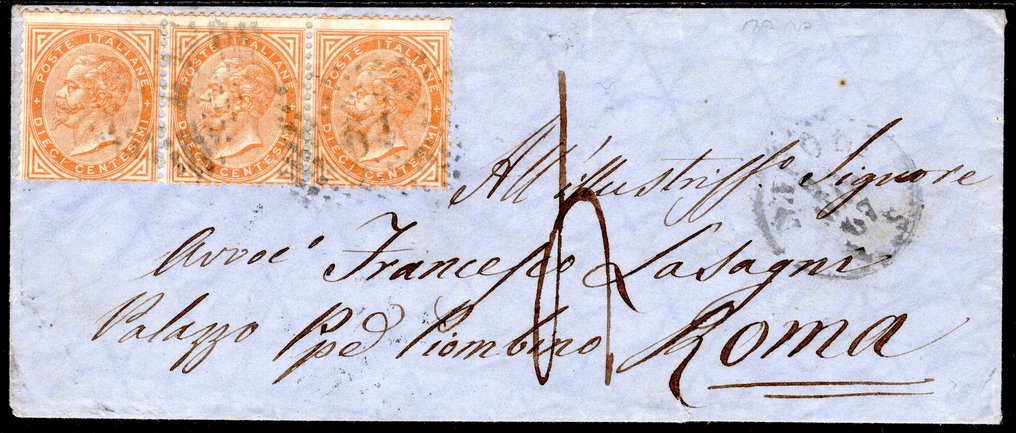 POSTE ITALIANE
DIECI CENTESIMI
POSTE ITALIANE
DIECI CENTESIMI
POSTE ITALIANE
DIECI CENTESIMI
All'illustriss.o Signore
Avvoc.o Francesco Lasagni
Palazzo Ppe Piombino,
Roma